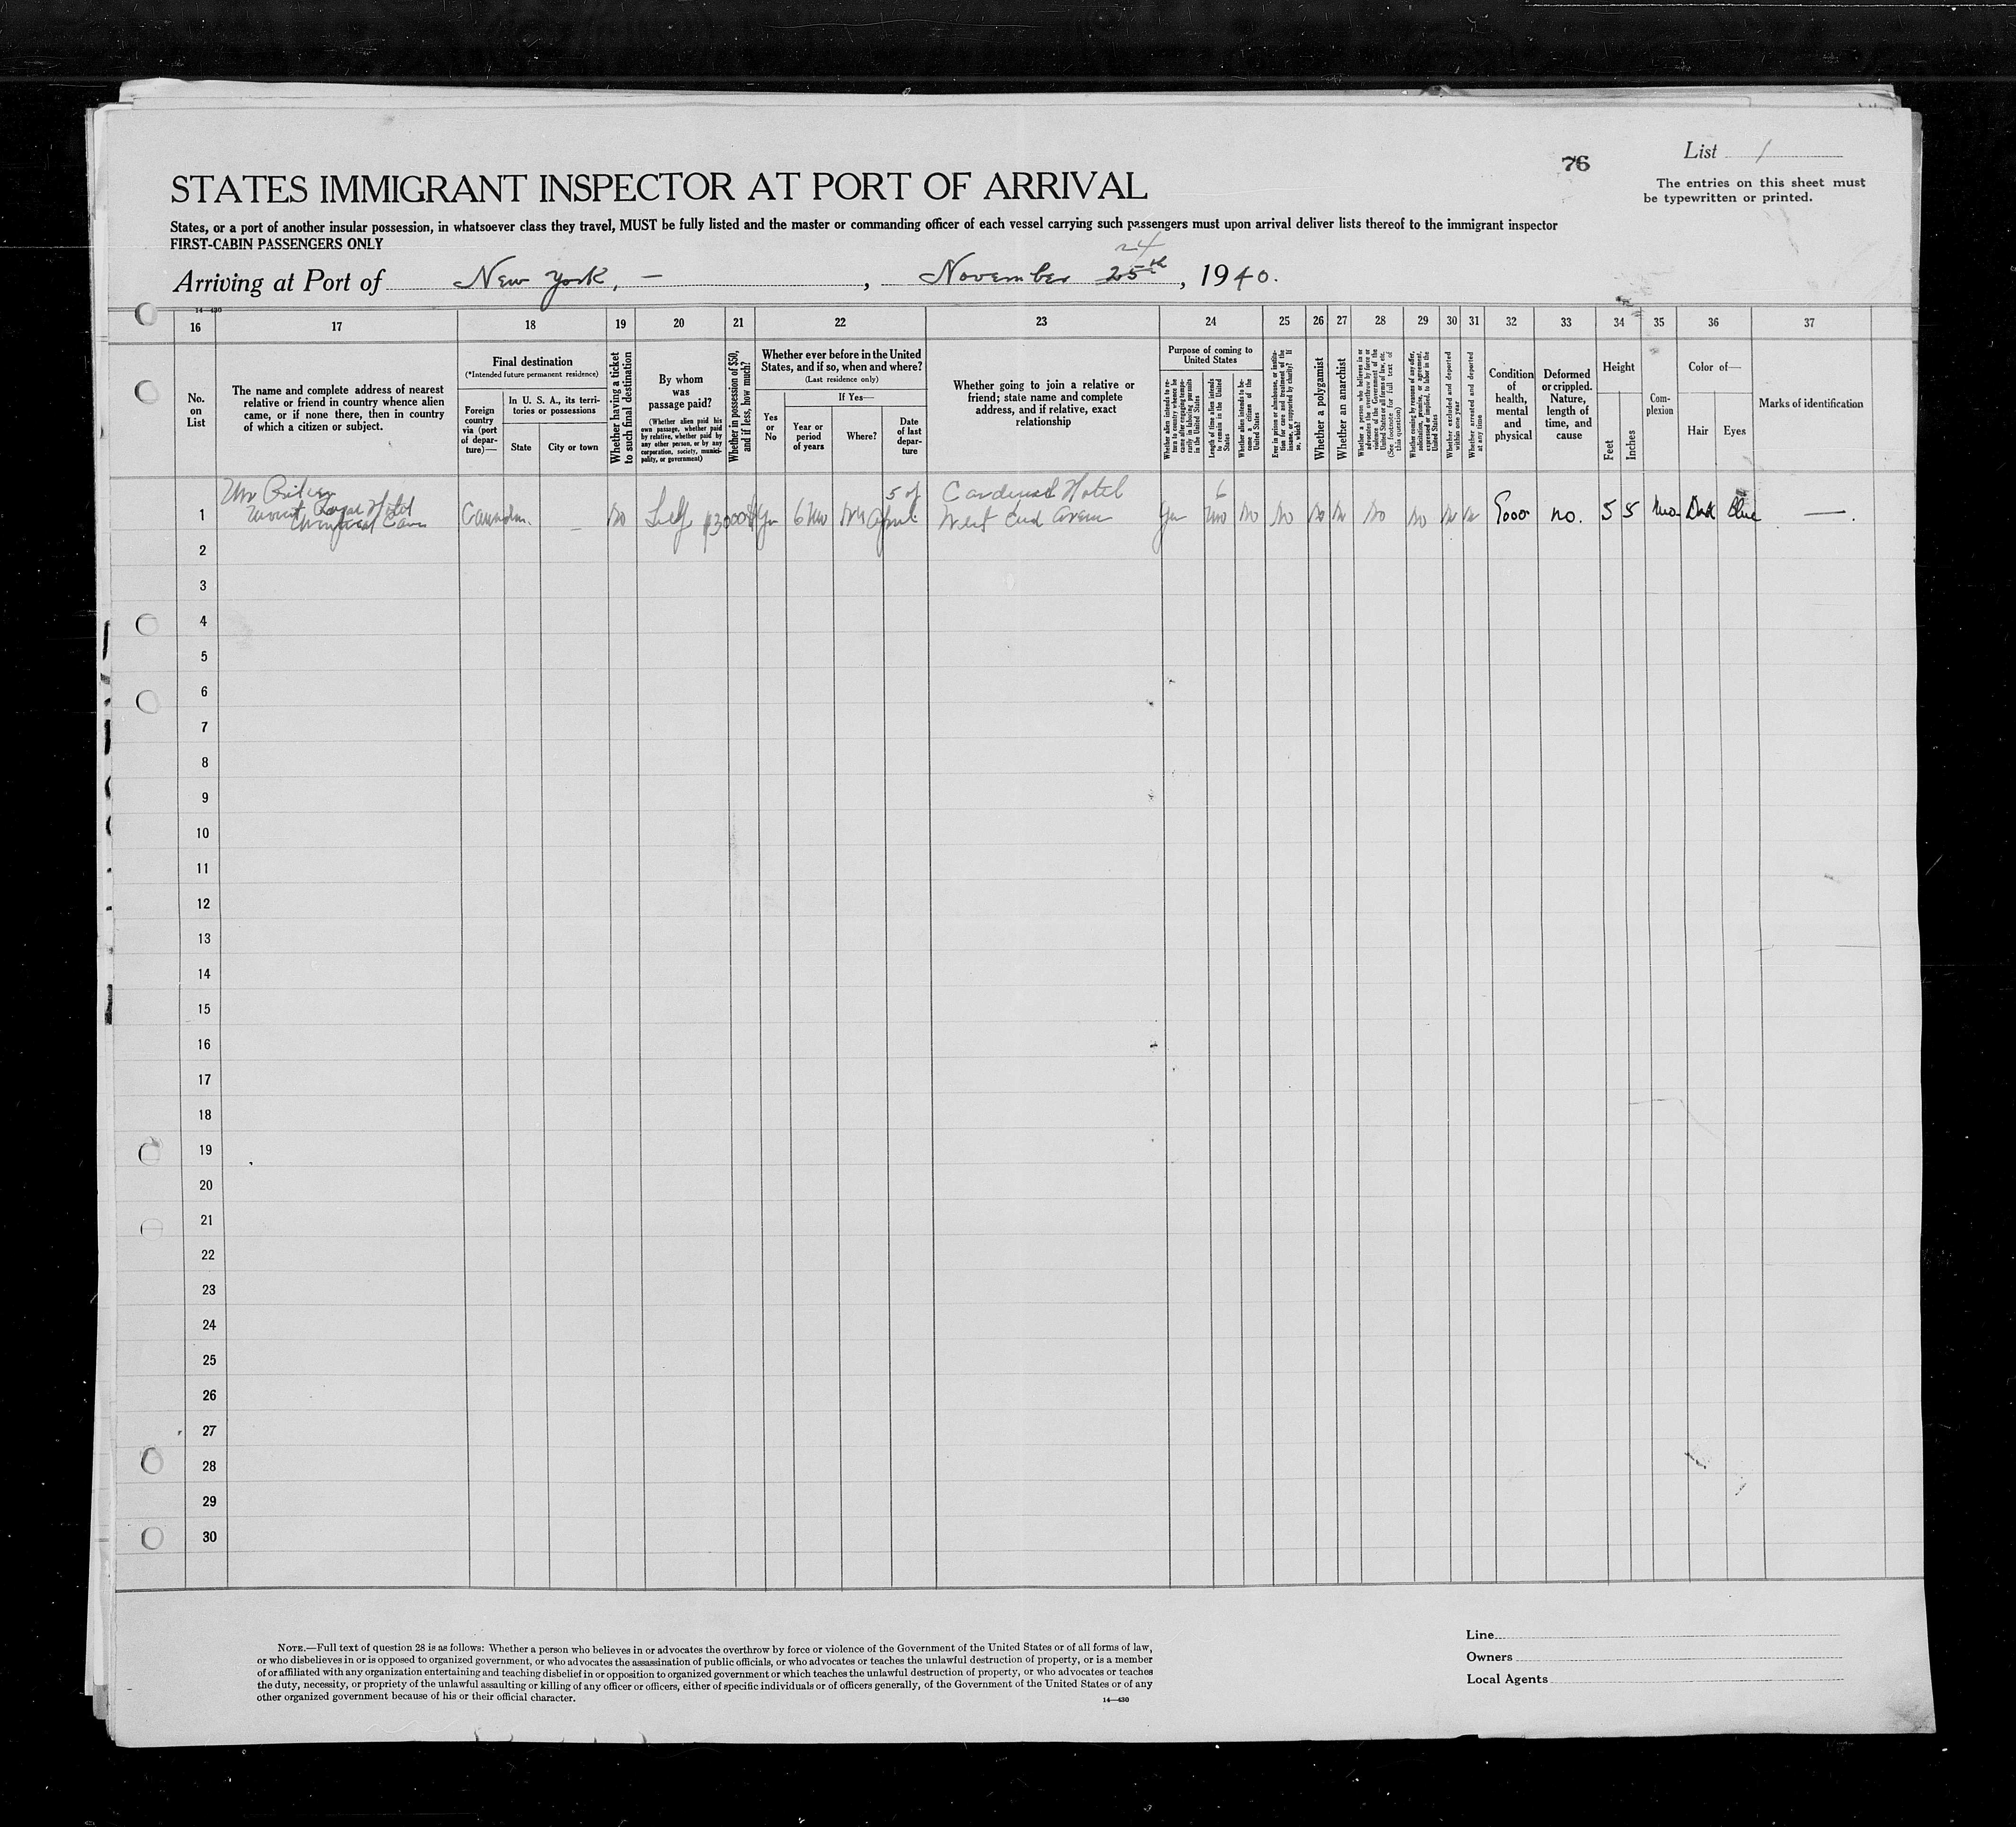 76
List 1
The entries on this sheet must
be typewritten or printed.
STATES IMMIGRANT INSPECTOR AT PORT OF ARRIVAL
States, or a port of another insular possession, in whatsoever class they travel, MUST be fully listed and the master or commanding officer of each vessel carrying such passengers must upon arrival deliver lists thereof to the immigrant inspector
FIRST-CABIN PASSENGERS ONLY
24
Arriving at Port of New York, — , November 25th, 1940.
14—430
16 17 18 19 20 21 22 23 24 25 26 27 28 29 30 31 32 33 34 35 36 37
No.
on
List
The name and complete address of nearest
relative or friend in country whence alien
came, or if none there, then in country
of which a citizen or subject.
Final destination
(*Intended future permanent residence)
Foreign
country
via (port
of depar-
ture)—
In U. S. A., its terri-
tories or possessions
State
City or town
Whether having a ticket
to such final destination
By whom
was
passage paid?
(Whether alien paid his
own passage, whether paid
by relative, whether paid by
any other person, or by any
corporation, society, munici-
pality, or government)
Whether in possession of $50,
and if less, how much?
Whether ever before in the United
States, and if so, when and where?
(Last residence only)
Yes
or
No
If Yes—
Year or
period
of years
Where?
Date
of last
depar-
ture
Whether going to join a relative or
friend; state name and complete
address, and if relative, exact
relationship
Purpose of coming to
United States
Whether alien intends to re-
turn to country whence he
came after engaging tempo-
rarily in laboring pursuits
in the United States
Length of time alien intends
to remain in the United
States
Whether alien intends to be-
come a citizen of the
United States
Ever in prison or almshouse, or institu-
tion for care and treatment of the
insane, or supported by charity? If
so, which?
Whether a polygamist
Whether an anarchist
Whether a person who believes in or
advocates the overthrow by force or
violence of the Government of the
United States or all forms of law, etc.
(See footnote for full text of
this question)
Whether coming by reason of any offer,
solicitation, promise, or agreement,
expressed or implied, to labor in the
United States
Whether excluded and deported
within one year
Whether arrested and deported
at any time
Condition
of
health,
mental
and
physical
Deformed
or crippled.
Nature,
length of
time, and
cause
Height
Feet
Inches
Com-
plexion
Color of—
Hair
Eyes
Marks of identification
Royal Hotel
5 of Cardinal Hotel 6
1 No Self $3000 6 April West End No No No No No No No Good no. 5 5 Dark Blue —.
2
3
4
5
6
7
8
9
10
11
12
13
14
15
16
17
18
19
20
21
22
23
24
25
26
27
28
29
30
NOTE.—Full text of question 28 is as follows: Whether a person who believes in or advocates the overthrow by force or violence of the Government of the United States or of all forms of law,
or who disbelieves in or is opposed to organized government, or who advocates the assassination of public officials, or who advocates or teaches the unlawful destruction of property, or is a member
of or affiliated with any organization entertaining and teaching disbelief in or opposition to organized government or which teaches the unlawful destruction of property, or who advocates or teaches
the duty, necessity, or propriety of the unlawful assaulting or killing of any officer or officers, either of specific individuals or of officers generally, of the Government of the United States or of any
other organized government because of his or their official character.
14—430
Line
Owners
Local Agents